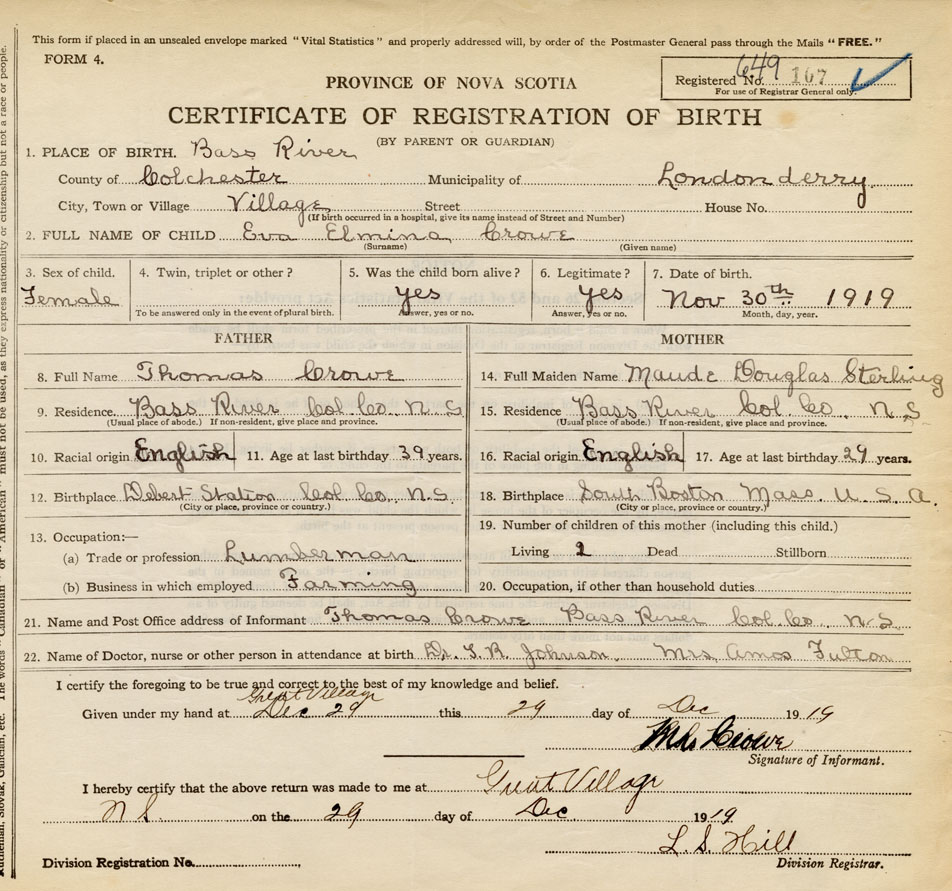 This form if placed in an unsealed envelope marked "Vital Statistics" and properly addressed will, by order of the Postmaster General pass through the Mails "FREE."
FORM 4.
Registered No. 649 167
For use of Registrar General only.
PROVINCE OF NOVA SCOTIA
CERTIFICATE OF REGISTRATION OF BIRTH
(BY PARENT OR GUARDIAN)
1. PLACE OF BIRTH. Bass River
County of Colchester Municipality of Londonderry
City, Town or Village Village Street House No.
(If birth occurred in a hospital, give its name instead of Street and Number)
2. FULL NAME OF CHILD Eva Elmina Crowe
(Surname) (Given name)
3. Sex of child. 4. Twin, triplet or other? 5. Was the child born alive? 6. Legitimate? 7. Date of birth.
Female yes yes Nov 30th 1919
To be answered only in the event of plural birth. Answer, yes or no. Answer, yes or no. Month, day, year.
FATHER
8. Full Name Thomas Crowe
9. Residence Bass River Col. Co. N.S
(Usual place of abode.) If non-resident, give place and province.
10. Racial origin English 11. Age at last birthday 39 years.
12. Birthplace Debert Station Col. Co. N.S.
(City or place, province or country.)
13. Occupation:—
(a) Trade or profession Lumberman
(b) Business in which employed Farming
MOTHER
14. Full Maiden Name Maude Douglas Sterling
15. Residence Bass River Col. Co. N.S
(Usual place of abode.) If non-resident, give place and province.
16. Racial origin English 17. Age at last birthday 29 years.
18. Birthplace South Boston Mass. U.S.A.
(City or place, province or country.)
19. Number of children of this mother (including this child.)
Living 2 Dead Stillborn
20. Occupation, if other than household duties
21. Name and Post Office address of Informant Thomas Crowe Bass River Col. Co. N.S.
22. Name of Doctor, nurse or other person in attendance at birth Dr. T.R. Johnson. Mrs Amos Fulton
I certify the foregoing to be true and correct to the best of my knowledge and belief.
Great Village
Given under my hand at Dec 29 this 29 day of Dec 1919
Crowe
Signature of Informant.
I hereby certify that the above return was made to me at Great Village
N S. on the 29 day of Dec 1919
L S Hill
Division Registration No. Division Registrar.